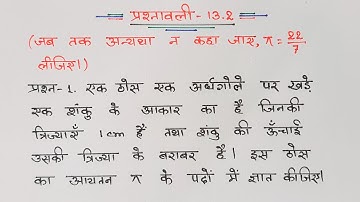 प्रश्नावली - 13.2
(जब तक अन्यथा न कहा जाए, π = 22/7
लीजिए।)
प्रश्न-1. एक ठोस एक अर्धगोले पर खड़े
एक शंकु के आकार का है जिनकी
त्रिज्याएँ 1 cm हैं तथा शंकु की ऊँचाई
उसकी त्रिज्या के बराबर है। इस ठोस
का आयतन π के पदों में ज्ञात कीजिए।